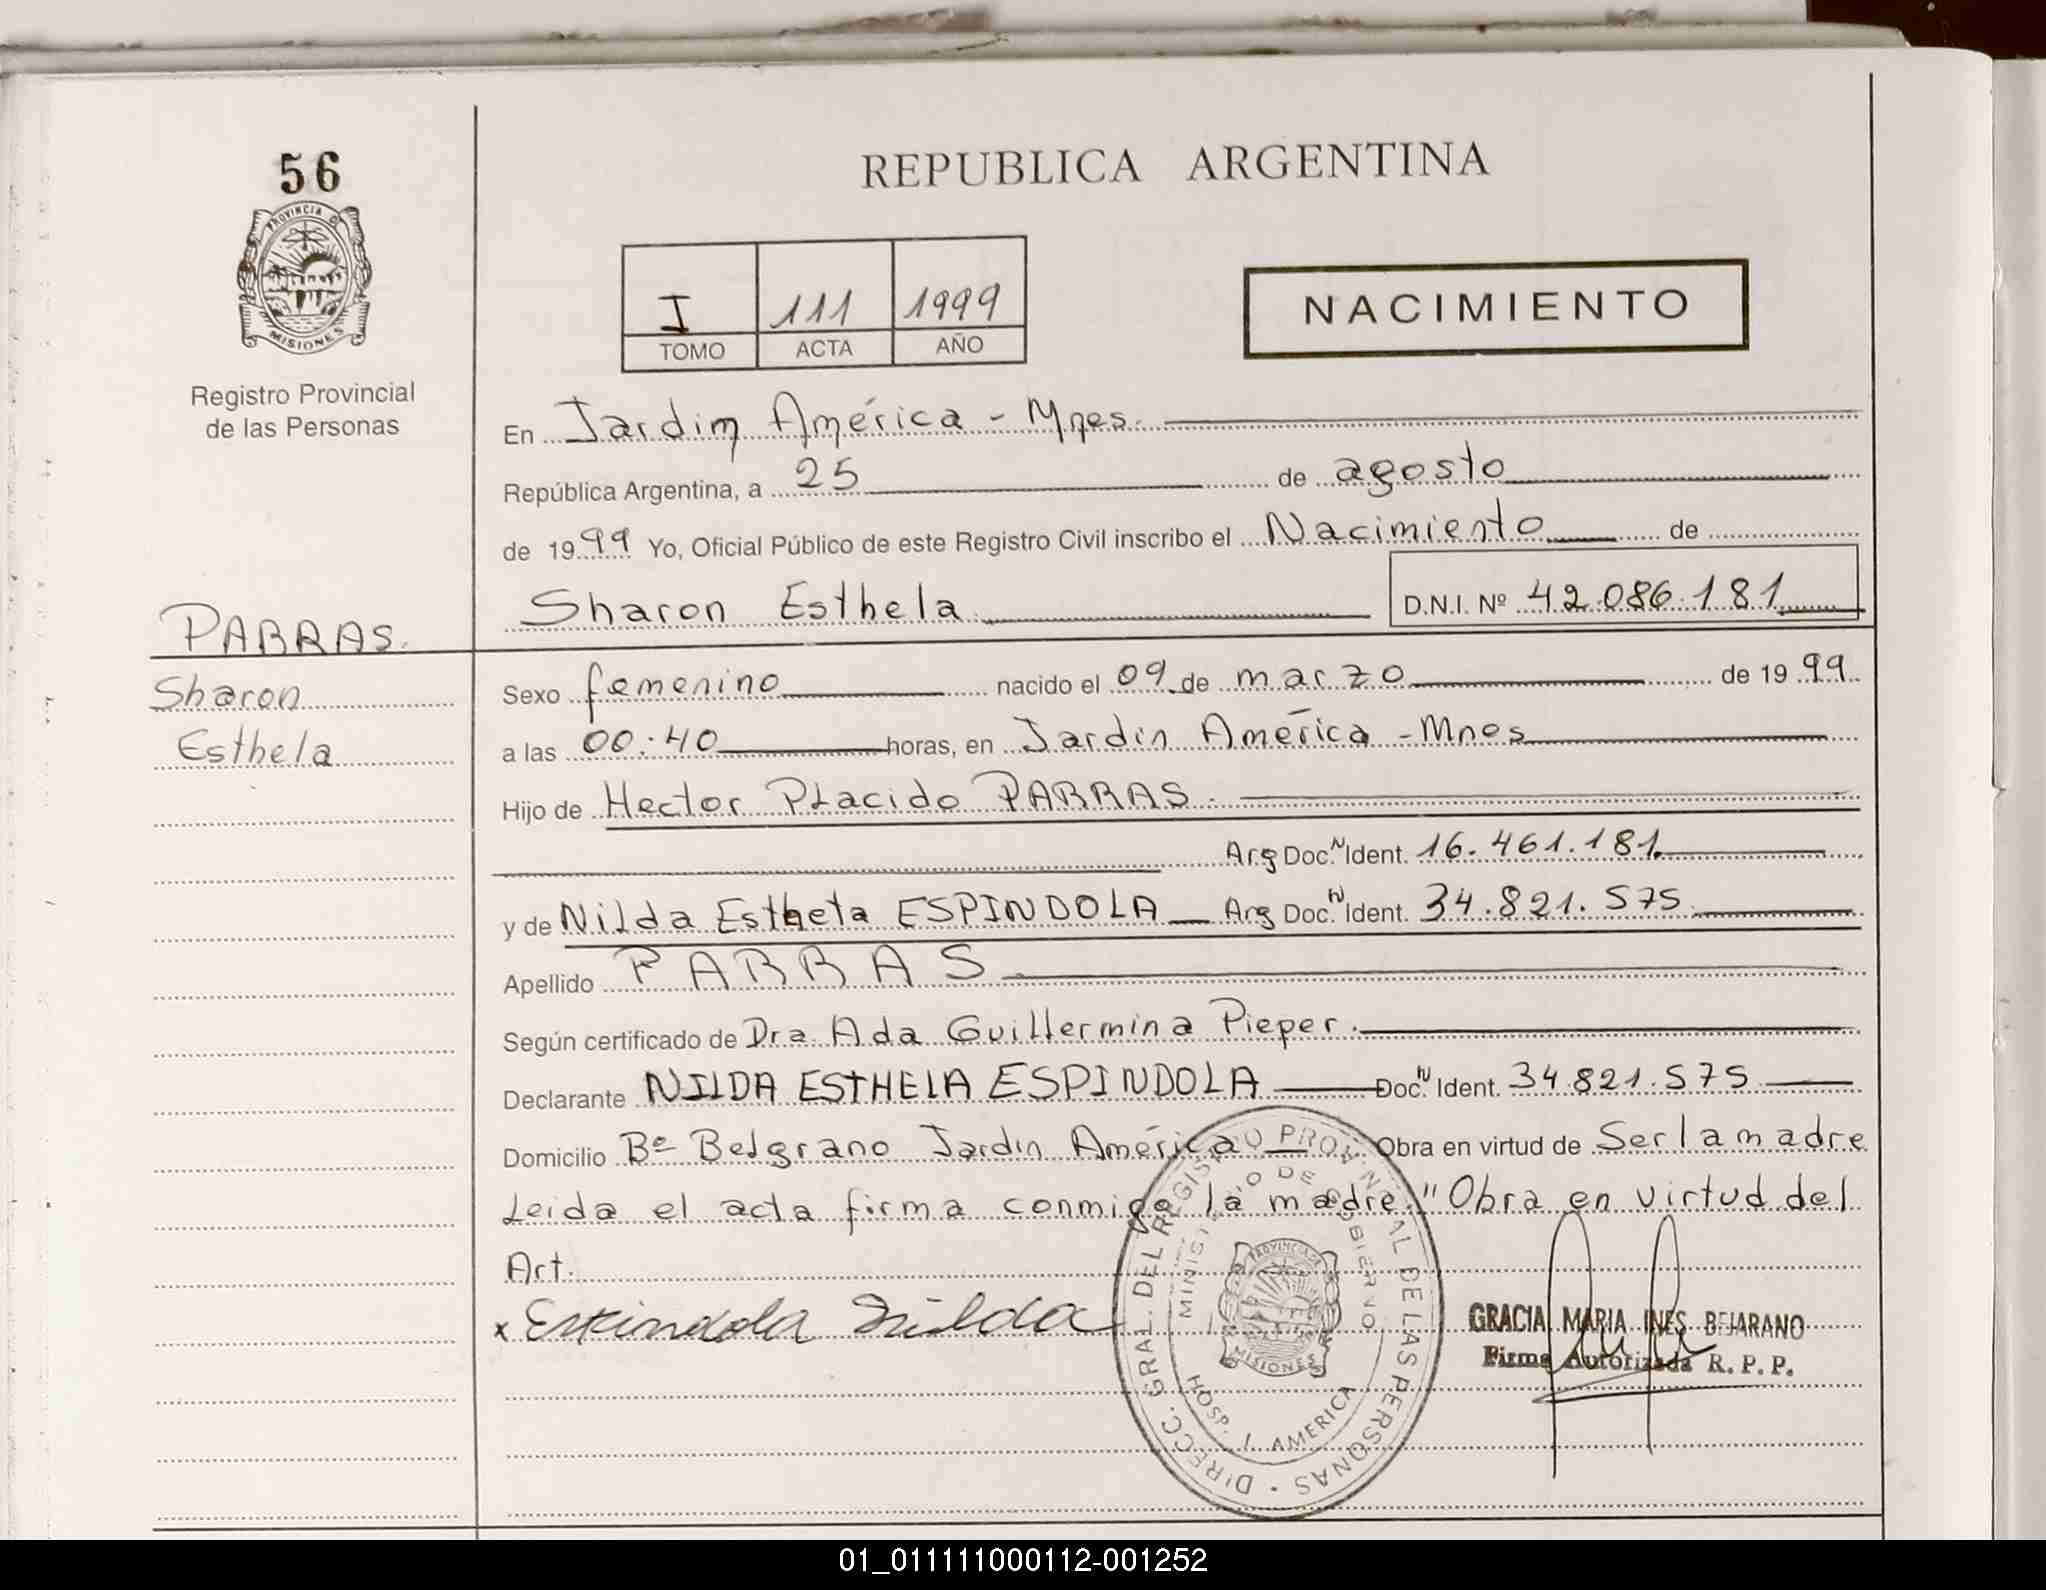 56
PROVINCIA D
MISIONES
Registro Provincial
de las Personas
PARRAS.
Sharon
Esthela
REPUBLICA ARGENTINA
I 111 1999
TOMO ACTA AÑO
NACIMIENTO
En Jardin América - Mnes.
República Argentina, a 25 de agosto
de 1999 Yo, Oficial Público de este Registro Civil inscribo el Nacimiento de
Sharon Esthela D.N.I. Nº 42.086.181
Sexo femenino nacido el 09 de marzo de 1999
a las 00:40 horas, en Jardin América - Mnes
Hijo de Hector Placido PARRAS.
Arg Doc. N Ident. 16.461.181.
y de Nilda Esthela ESPINDOLA Arg Doc. N Ident. 34.821.575
Apellido PARRAS
Según certificado de Dra. Ada Guillermina Pieper.
Declarante NILDA ESTHELA ESPINDOLA Doc. N Ident. 34.821.575
Domicilio Bº Belgrano Jardin América Obra en virtud de Ser la madre
Leida el acta firma conmigo la madre. "Obra en virtud del
Art.
x Espindola Nilda
DIRECC. GRAL. DEL REGISTRO PROVINCIAL DE LAS PERSONAS
MINISTERIO DE GOBIERNO
PROVINCIA DE
MISIONES
HOSP. J. AMERICA
GRACIA MARIA INES BEJARANO
Firma Autorizada R.P.P.
01_011111000112-001252